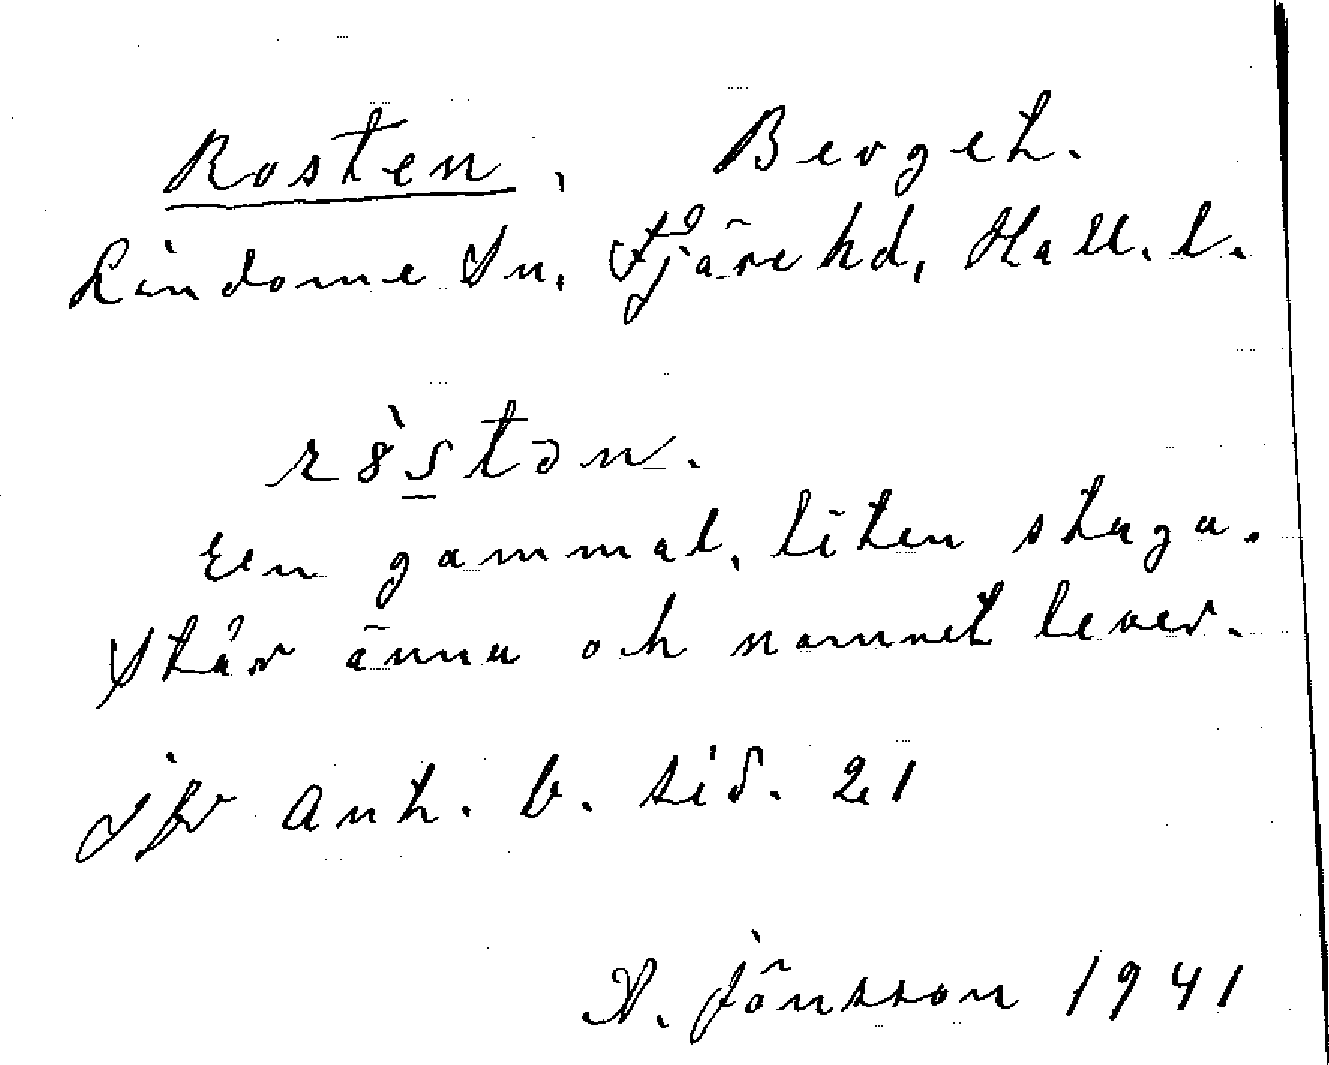 Rosten, Berget.
Lindome Sn, Fjäre hd, Hall. l.
rɤ̀stən.
En gammal, liten stuga.
Står ännu och namnet lever.
Jfr Ant. b. sid. 21
A. Jönsson 1941